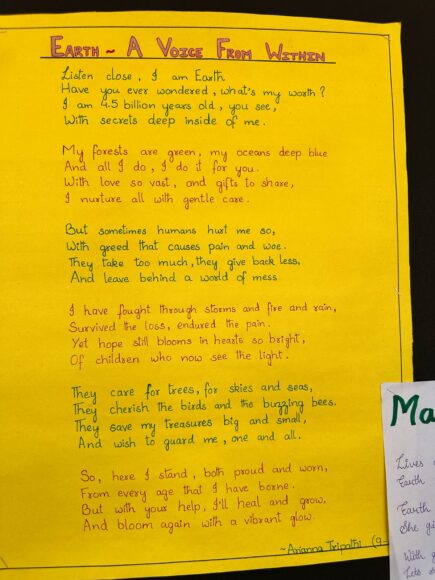 EARTH ~ A VOICE FROM WITHIN
Listen close, I am Earth
Have you ever wondered, what's my worth?
I am 4.5 billion years old, you see,
With secrets deep inside of me.
My forests are green, my oceans deep blue
And all I do, I do it for you.
With love so vast, and gifts to share,
I nurture all with gentle care.
But sometimes humans hurt me so,
With greed that causes pain and woe.
They take too much, they give back less,
And leave behind a world of mess
I have fought through storms and fire and rain,
Survived the loss, endured the pain.
Yet hope still blooms in hearts so bright,
Of children who now see the light.
They care for trees, for skies and seas,
They cherish the birds and the buzzing bees.
They save my treasures big and small,
And wish to guard me, one and all.
So, here I stand, both proud and worn,
From every age that I have borne.
But with your help, I'll heal and grow,
And bloom again with a vibrant glow.
~Arianna Tripathi (9-
Ma
Lives
Earth
Earth
She
With
Lets